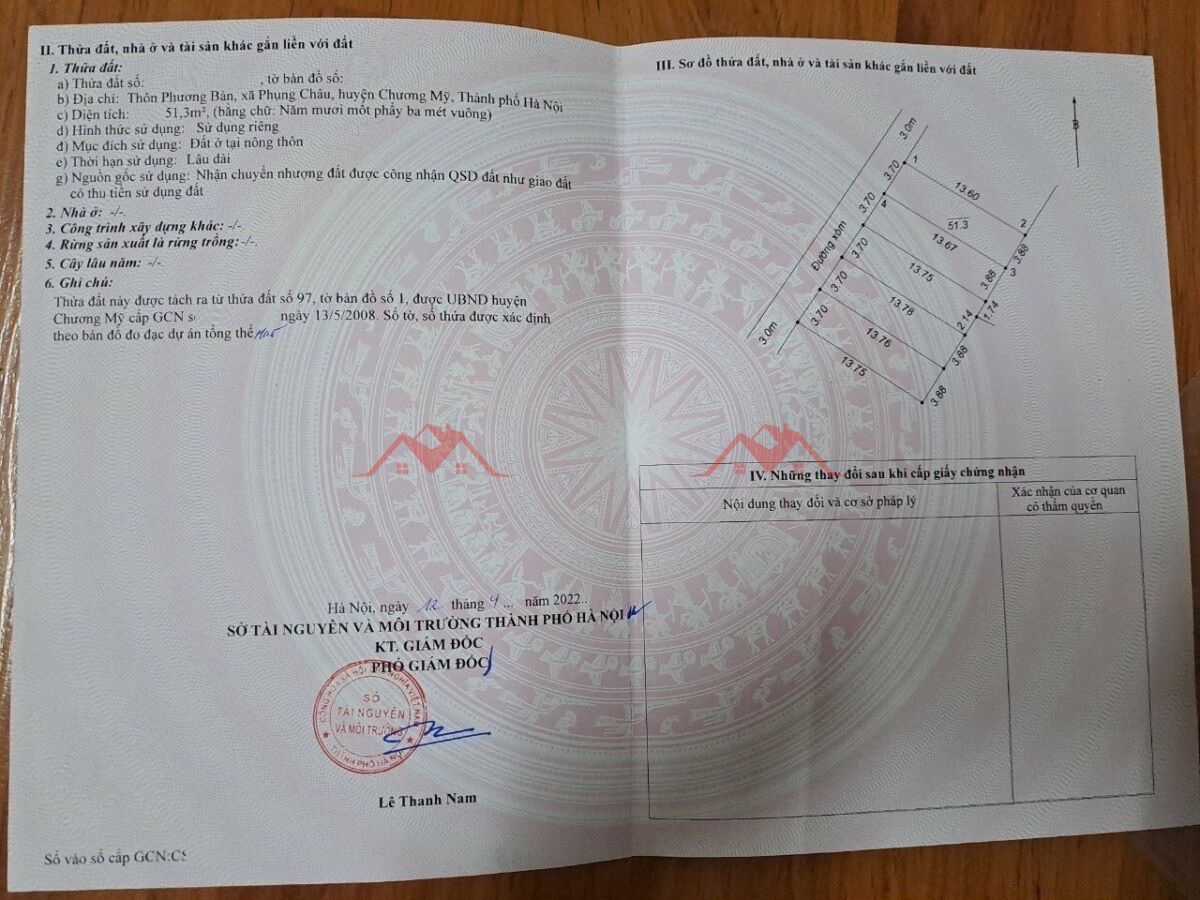 II. Thửa đất, nhà ở và tài sản khác gắn liền với đất
1. Thửa đất:
a) Thửa đất số: , tờ bản đồ số:
b) Địa chỉ: Thôn Phương Bản, xã Phụng Châu, huyện Chương Mỹ, Thành phố Hà Nội
c) Diện tích: 51,3m², (bằng chữ: Năm mươi mốt phẩy ba mét vuông)
d) Hình thức sử dụng: Sử dụng riêng
đ) Mục đích sử dụng: Đất ở tại nông thôn
e) Thời hạn sử dụng: Lâu dài
g) Nguồn gốc sử dụng: Nhận chuyển nhượng đất được công nhận QSD đất như giao đất
có thu tiền sử dụng đất
2. Nhà ở: -/-
3. Công trình xây dựng khác: -/-.
4. Rừng sản xuất là rừng trồng: -/-.
5. Cây lâu năm: -/-
6. Ghi chú:
Thửa đất này được tách ra từ thửa đất số 97, tờ bản đồ số 1, được UBND huyện
Chương Mỹ cấp GCN ngày 13/5/2008. Số tờ, số thửa được xác định
theo bản đồ đo đạc dự án tổng thể
Hà Nội, ngày 12 tháng 4 ... năm 2022..
SỞ TÀI NGUYÊN VÀ MÔI TRƯỜNG THÀNH PHỐ HÀ NỘI
KT. GIÁM ĐỐC
PHÓ GIÁM ĐỐC
CỘNG HÒA XÃ HỘI CHỦ NGHĨA VIỆT NAM
SỞ
TÀI NGUYÊN
VÀ MÔI TRƯỜNG
THÀNH PHỐ HÀ NỘI
Lê Thanh Nam
Số vào sổ cấp GCN:CS
III. Sơ đồ thửa đất, nhà ở và tài sản khác gắn liền với đất
B
3.0m
1
3.70
13.60
2
4
51.3
3.70
13.67
3.88
3
Đường xóm
3.70
13.75
3.88
3.70
13.78
1.74
2.14
3.70
13.76
3.88
3.0m
13.75
3.88
IV. Những thay đổi sau khi cấp giấy chứng nhận
Nội dung thay đổi và cơ sở pháp lý
Xác nhận của cơ quan
có thẩm quyền